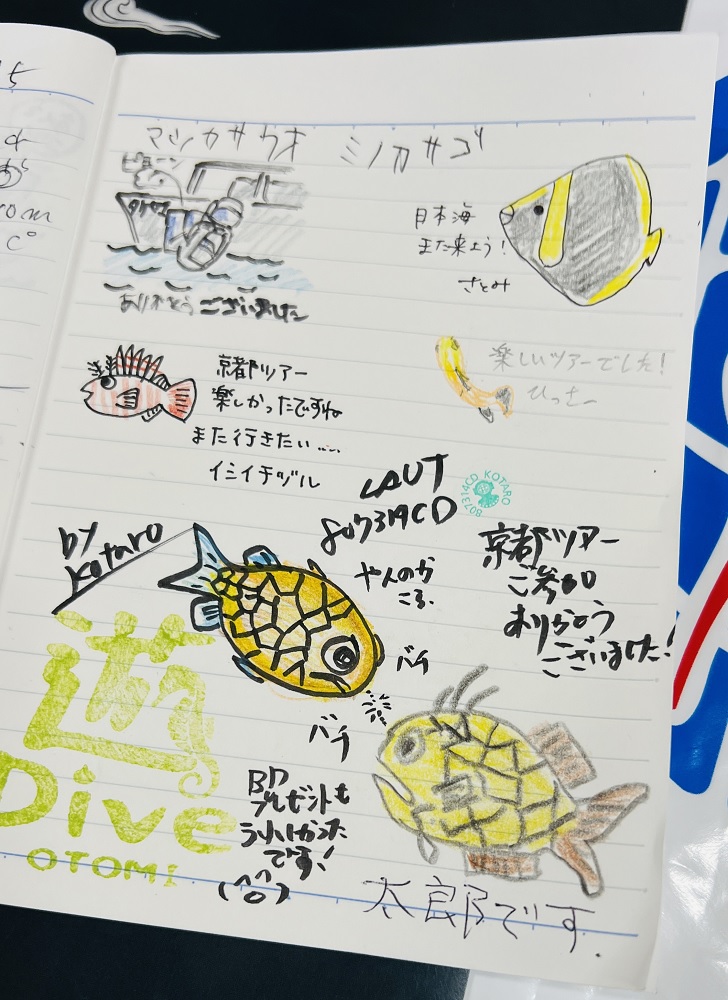 マツカサウオ ミノカサゴ
日本海
また来よう!
さとみ
ありがとうございました
京都ツアー
楽しかったですね
また行きたい……
イシイチヅル
楽しいツアーでした!
ひっさー
LAUT
807314CD
807314CD KOTARO
by
Kotaro
やんのか
こら.
京都ツアー
ご参加
ありがとう
ございました!
バチ
バチ
遊
Dive
OTOMI
BD
プレゼントも
うれしかった
です!
(^o^)
太郎です.
15
com
C°